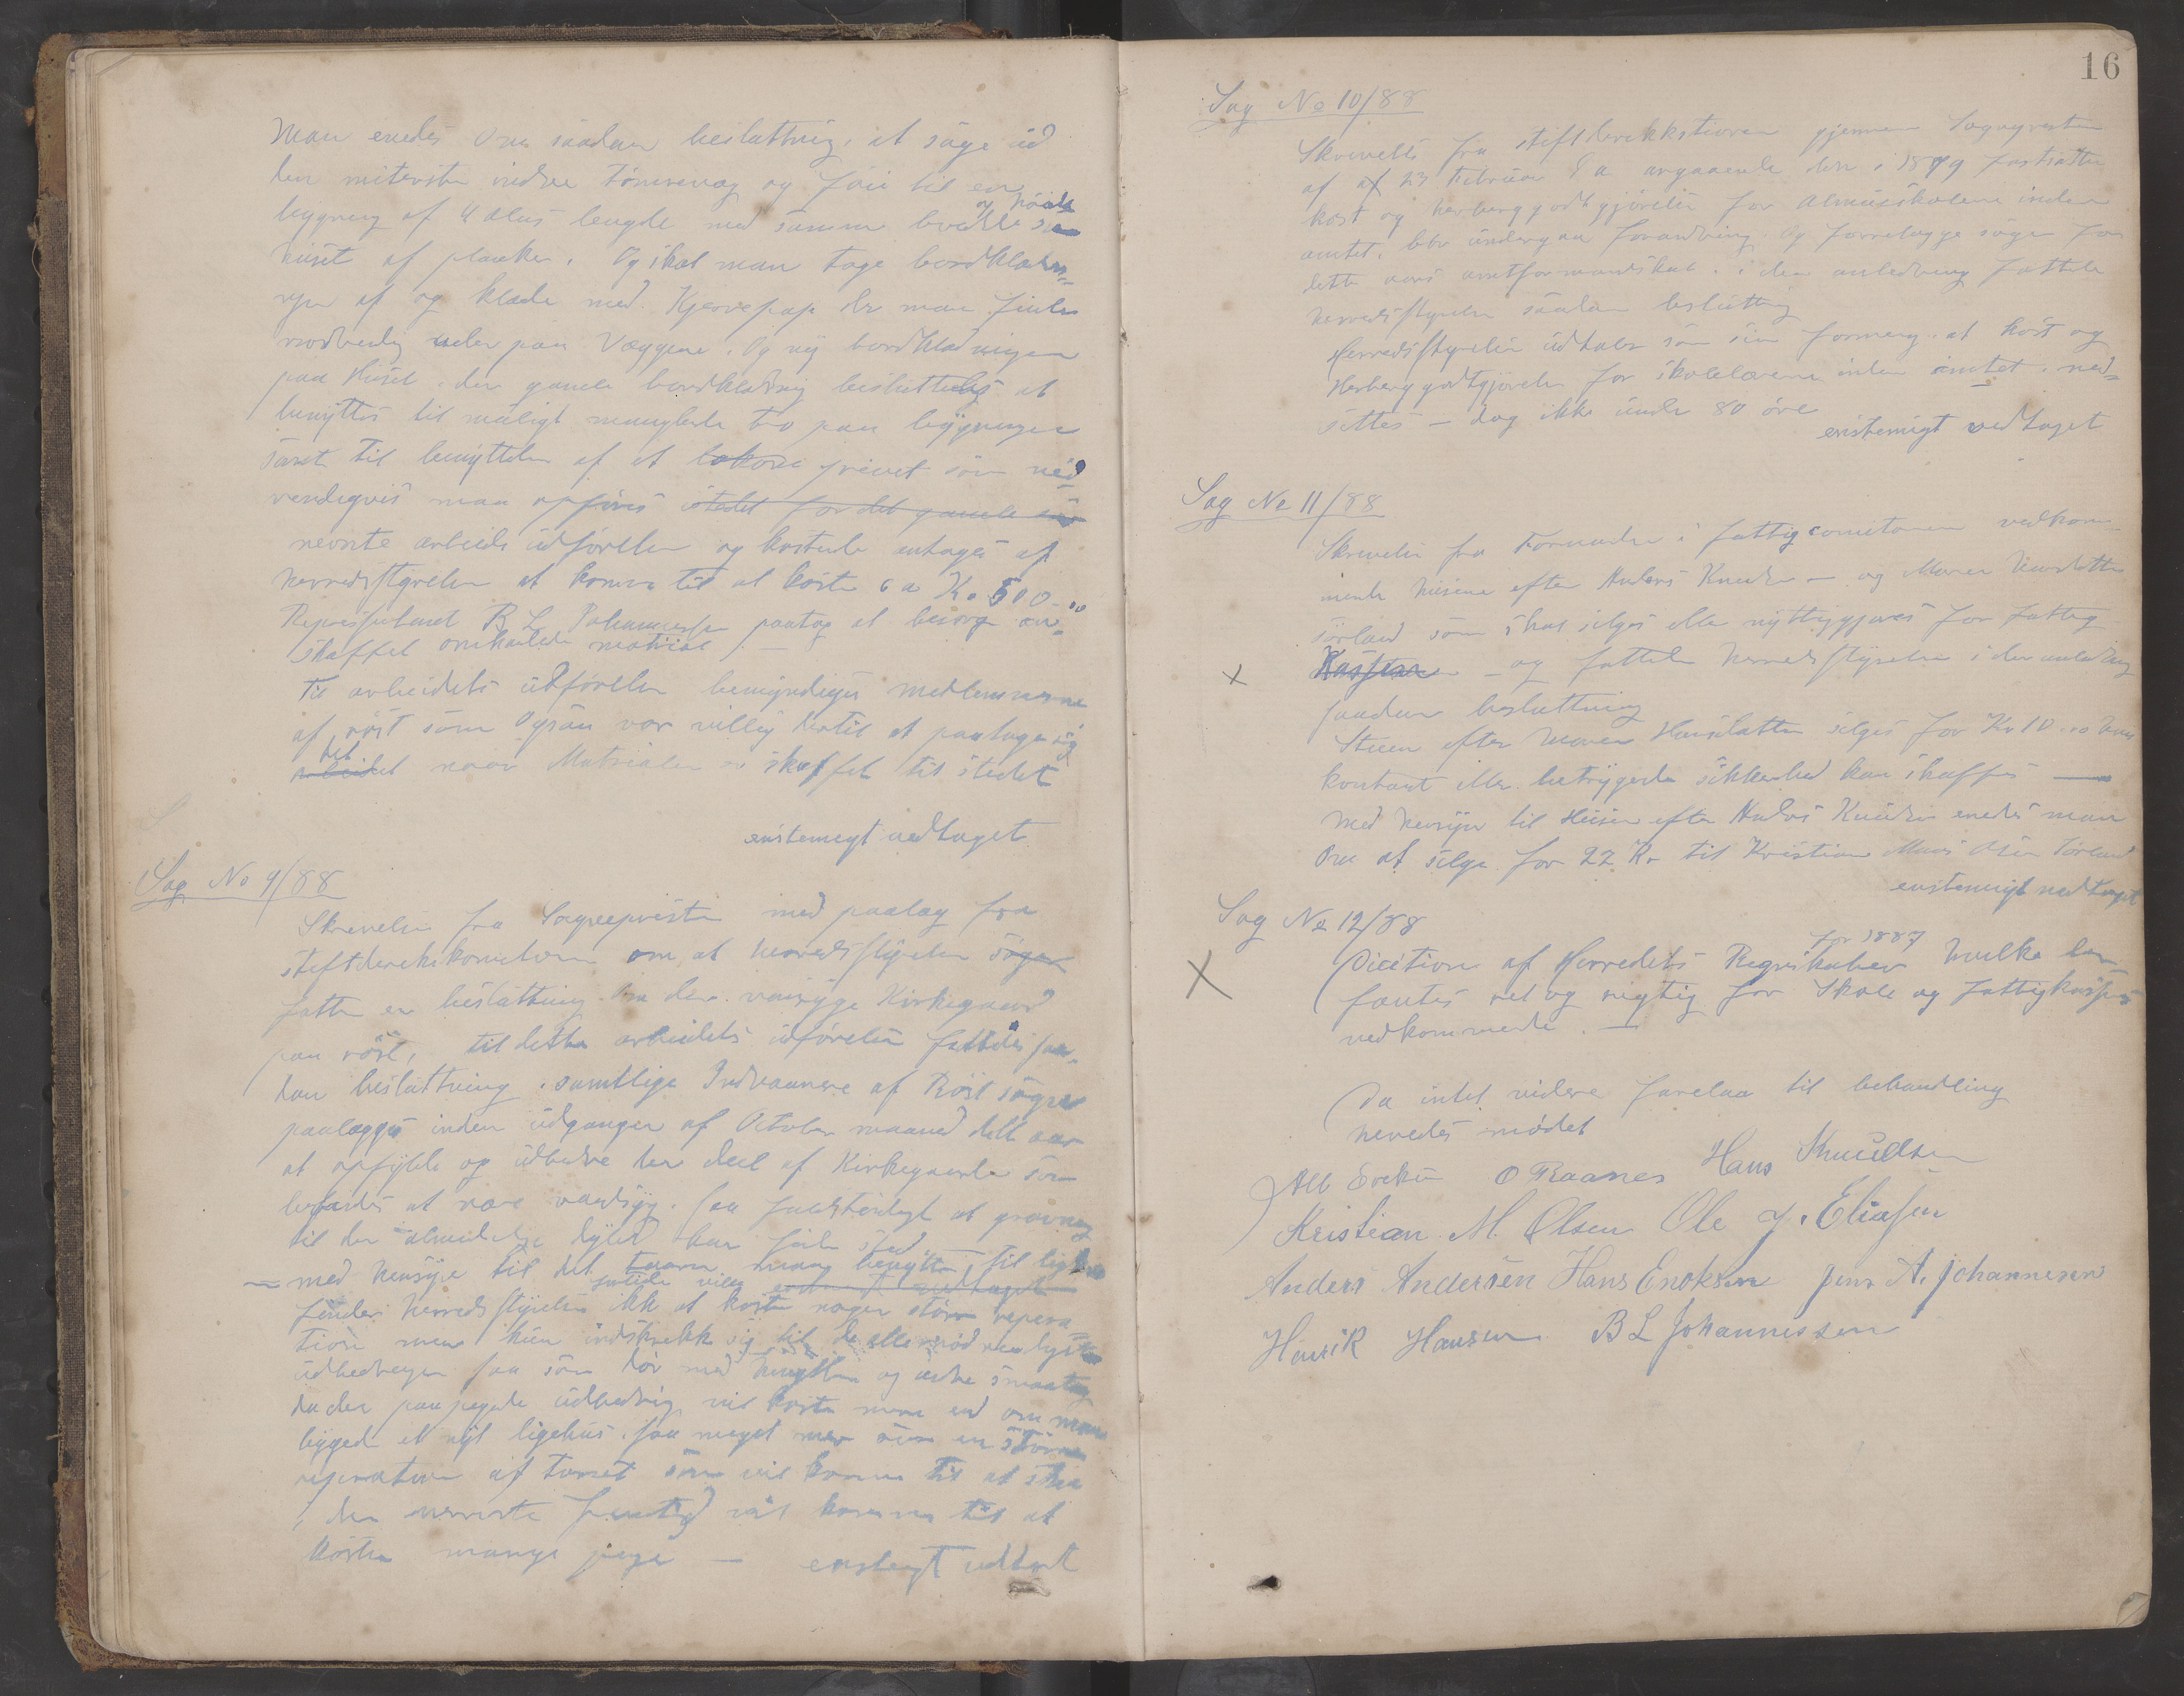 Man enedes Om saadan beslutning, at sage ud
den indre Tømrevæg og føie til en
bygning af 4 alns lengde med samme bredde og høide
huset af planker. Og skal man tage bordklædn=
af og klæde med Kjærepap der man finder
nødvendig paa Væggene. Og ny bordklædningen
paa Huset. den gamle bordklædnig besluttedes at
benyttes til muligt manglende bro paa bygningen
samt til benyttelse af et lokom privet som nød=
vendigvis maa opføres istedet for det gamle
nevnte arbeids udførelse og kostende antages af
herredsstyrelsen at komme til at koste ca Kr 500-00
Repressentant B L Johannessen paatog at besørge an=
skaffet omhandlede matrial -
Til arbeidets udførelse bemyndiges medlemmerne
af røst som Ogsaa var villig dertil at paatage sig
det
arbeidet naar Matrialer er skaffet til stedet
enstemigt vedtaget
Sag No 9/88
Skrivelse fra Sognepresten med paalæg fra
stiftderekskonen om at herredsstyrelsen søger
fatte en beslutning om den vansyge Kirkegaard
paa røst, til dette arbeidets udførelse fattedes saa=
dan beslutning. samtlige Indvaanere af Røst sogn
paalægges inden udgangen af October maaned dette aar
at opfylde og udbedre den deel af Kirkegaarden som
befindes at være vandsyg. saa fuldstendigt at gravning
til den almindelige dybde kan finde sted
- med hensyn til det taarn benyttes til
finder Herredsstyrelsen ikke at koste nogen større repera=
tion men kun indskrenke sig til de aller nødvendigste
udbedringer saa som dør med hengsler og andre smaating
da den paapegede udbedring vil koste mere end om man
bygged et nyt ligehus. saa meget mer som en større
reperation af taarnet som vil komme til at skee
i den nermeste fremtid vil komme til at
koste mange penge - enstemigt vedtat
16
Sag No 10/88
Skrivelse fra stiftderekktionen gjennem Sognepresten
af af 23 Februar d a angaaende den i 1879 fastsatte
kost og herberggodtgjørelse for Almueskolerne inden
amtet, bør undergaa forandring Og forrelægge sagen for
dette aars amtformandskab. i den anledning fattede
herredsstyrelsen saadan beslutting
Herredsstyrelsen udtaler som sin formening at kost og
Herberggodtgjørelse for skolelærerne inden amtet. ned=
settes - dog ikke under 80 øre
enstemigt vedtaget
Sag No 11/88
Skrivelse fra Formanden i fattigcomitonen vedkom=
mende husene efter Anders Knudsen - og Maren Hanslotten
Sørland som skal selges eller nyttiggjøres for fattig
Kassen - og fattede herredsstyrelsen i den anledning
saadan beslutning
Stuen efter Maren Hanslotten selges for Kr 10.00 
kontant eller betryggende sikkerhed kan skaffes -
Med hensyn til Husene efter Anders Knudsen enedes man
Om at selge for 22 Kr til Kristian Mans Olsen Sørland
enstemigt vedtaget
Sag No 12/88
for 1887
Dicition af Herredets Regnskaber hvilke be=
fantes ret og rigtig for Skole og fattigkassens
vedkommende. -
Da intet videre forelaa til behandling
hevedes mødet
Alb Ereksen O Raanes Hans Knudlsen
Kristian M. Olsen Ole J. Eliasen
Anders Andersen Hans Enoksen Jens A. Johannesen
Henrik Hansen B L Johannessen